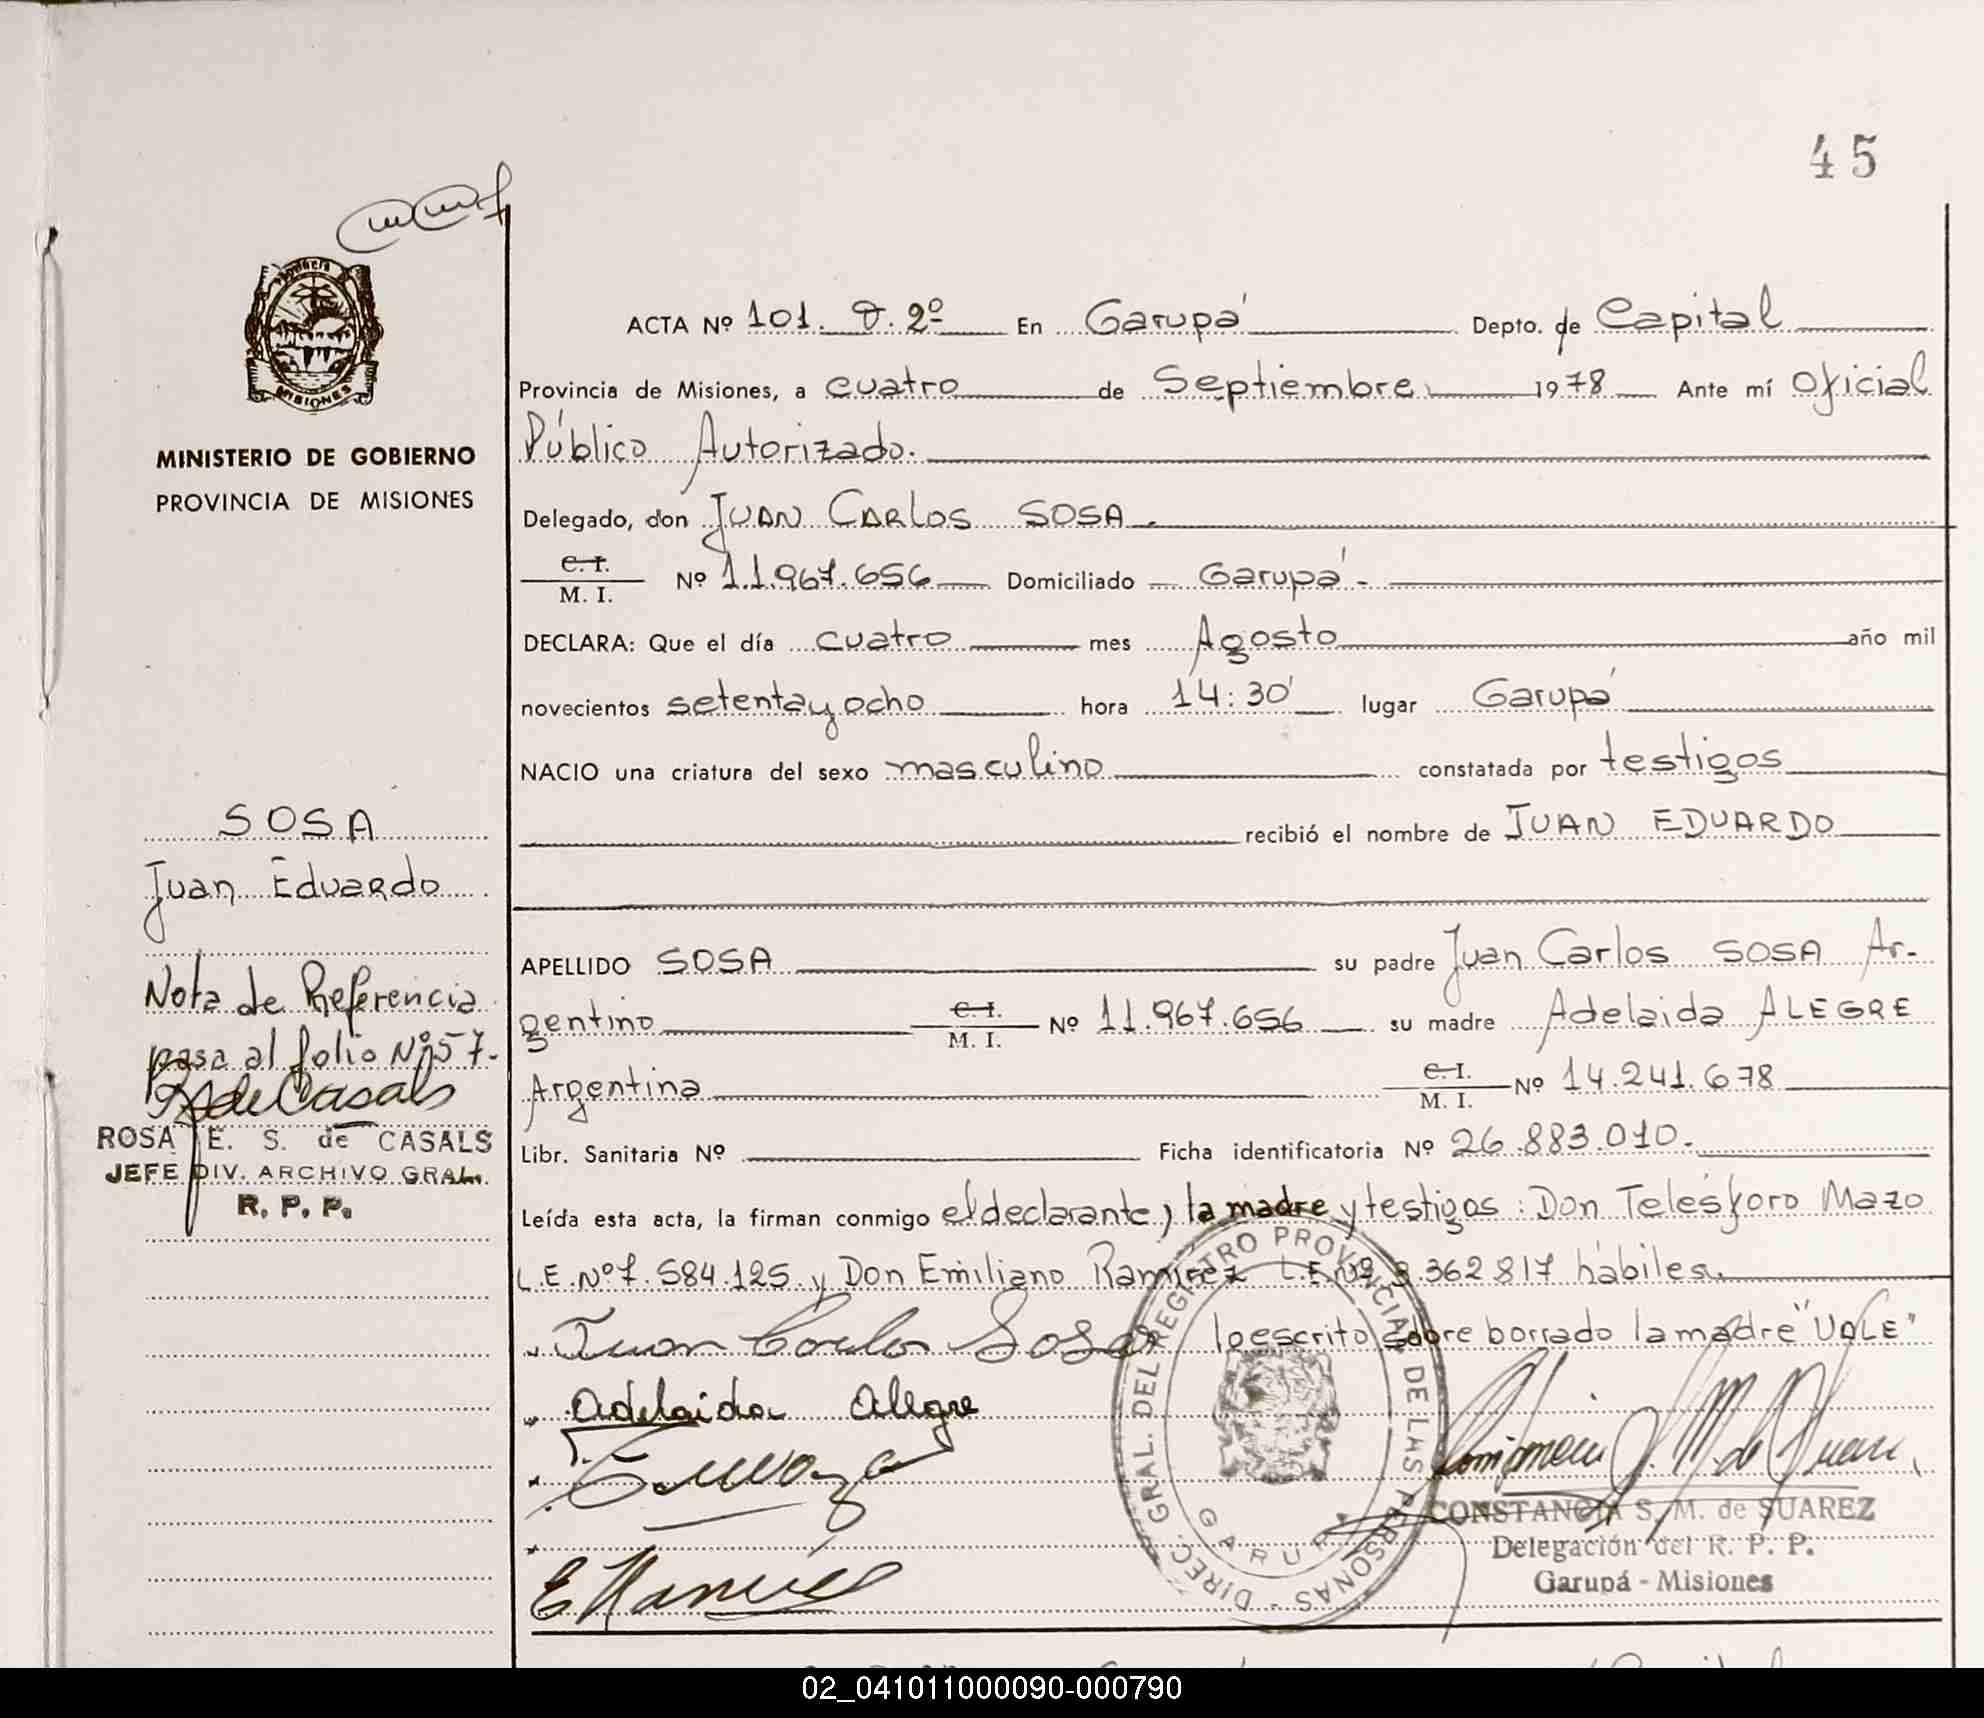 45
Provincia
MISIONES
MINISTERIO DE GOBIERNO
PROVINCIA DE MISIONES
SOSA
Juan Eduardo
Nota de Referencia
pasa al folio Nº57.
RSdeCasals
ROSA E. S. de CASALS
JEFE DIV. ARCHIVO GRAL.
R. P. P.
ACTA Nº 101. T. 2º En Garupá Depto. de Capital
Provincia de Misiones, a cuatro de Septiembre 1978 Ante mí Oficial
Público Autorizado.
Delegado, don JUAN CARLOS SOSA.
C. I.
M. I. Nº 11.967.656 Domiciliado Garupá.
DECLARA: Que el día cuatro mes Agosto año mil
novecientos setenta y ocho hora 14:30' lugar Garupá
NACIO una criatura del sexo masculino constatada por testigos
recibió el nombre de JUAN EDUARDO
APELLIDO SOSA su padre Juan Carlos SOSA Ar-
gentino C. I. M. I. Nº 11.967.656 su madre Adelaida ALEGRE
Argentina C. I. M. I. Nº 14.241.678
Libr. Sanitaria Nº Ficha identificatoria Nº 26.883.010.
Leída esta acta, la firman conmigo el declarante, la madre y testigos: Don Telésforo Mazo
L.E. Nº 7.584.125 y Don Emiliano Ramirez L.E. Nº 3.362817 hábiles.
Juan Carlos Sosa lo escrito sobre borrado la madre "VALE"
Adelaida Alegre
DIREC. GRAL. DEL REGISTRO PROVINCIAL DE LAS PERSONAS -
GARUPA
CONSTANCIA S. M. de SUAREZ
Delegación del R. P. P.
Garupá - Misiones
02_041011000090-000790